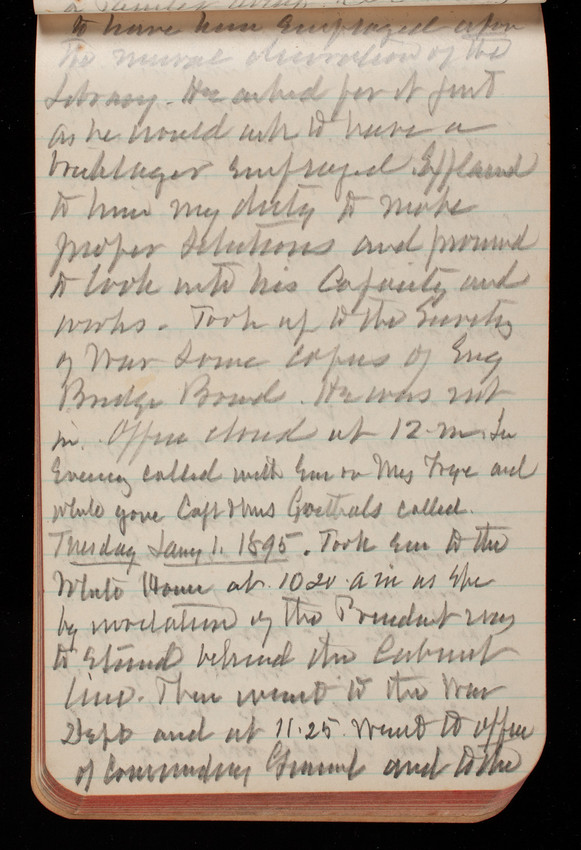 to have him employed upon
the mural decoration of the
Library. He asked for it just
as he would ask to have a
bricklayer employed. Explained
to him my duty to make
proper selections and promised
to look into his capacity and
works. Took up to the Secretary
of War some copies of Eng
Bridge Board. He was not
in. Office closed at 12 m. In
Evening called with Em on Mrs Frye and
while gone Capt & Mrs Goethals called.
Tuesday Jany 1. 1895. Took Em to the
White House at 10 20 a m as she
by invitation of the President was
to stand behind the Cabinet
line. Then went to the War
Dept and at 11.25 went to office
of Commanding General and to the